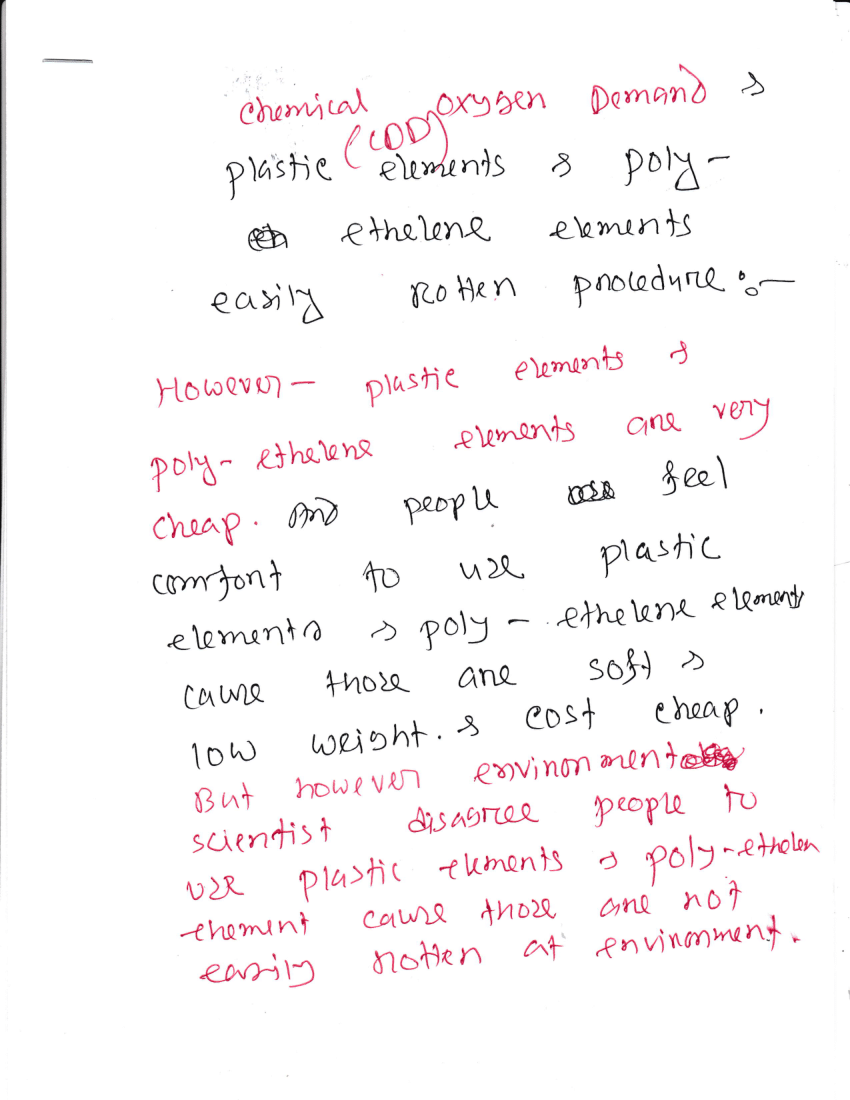 Chemical Oxygen Demand &
(COD)
plastic elements & poly-
ethelene elements
easily rotten procedure :-
However- plastic elements &
poly- ethelene elements are very
cheap. And people feel
comfort to use plastic
elements & poly - ethelene element
cause those are soft &
low weight. & cost cheap.
But however environment
scientist disagree people to
use plastic elements & poly-ethelen
element cause those are not
easily rotten at environment.